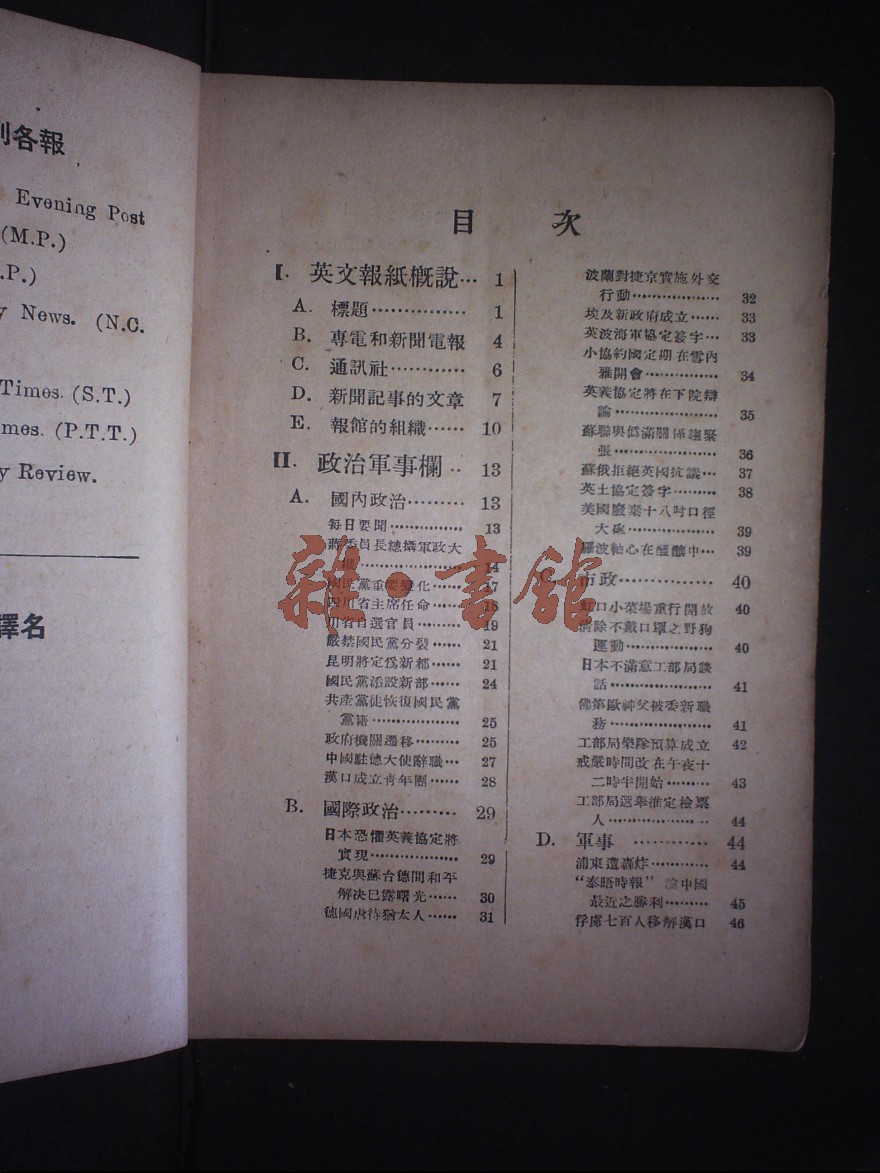 各報
Evening Post
(M.P.)
.P.)
y News. (N.C.
Times. (S.T.)
mes. (P.T.T.)
y Review.
譯名
目 次
I. 英文報紙概說… 1
A. 標題…………… 1
B. 專電和新聞電報 4
C. 通訊社………… 6
D. 新聞記事的文章 7
E. 報館的組織…… 10
II. 政治軍事欄‥ 13
A. 國內政治……… 13
每日要聞…………… 13
蔣委員長總攝軍政大
權…………………… 14
國民黨重要變化…… 17
四川省主席任命…… 18
川省自選官員……… 19
嚴禁國民黨分裂…… 21
昆明將定爲新都…… 21
國民黨添設新部…… 24
共產黨徒恢復國民黨
黨籍……………… 25
政府機關遷移……… 25
中國駐德大使辭職… 27
漢口成立靑年團…… 28
B. 國際政治……… 29
日本恐懼英義協定將
實現……………… 29
捷克與蘇台德間和平
解決已露曙光…… 30
德國虐待猶太人…… 31
波蘭對捷京實施外交
行動……………… 32
埃及新政府成立…… 33
英波海軍協定簽字… 33
小協約國定期在雪內
雅開會…………… 34
英義協定將在下院辯
論………………… 35
蘇聯與僞滿關係趨緊
張………………… 36
蘇俄拒絕英國抗議… 37
英土協定簽字……… 38
美國廢棄十八吋口徑
大砲……………… 39
羅波軸心在醞釀中… 39
市政…………… 40
虹口小菜場重行開放 40
淸除不戴口罩之野狗
運動……………… 40
日本不滿意工部局談
話………………… 41
佛第歐神父被委新職
務………………… 41
工部局樂隊預算成立 42
戒嚴時間改在午夜十
二時半開始……… 43
工部局選舉推定檢票
人………………… 44
D. 軍事 ………… 44
浦東遭轟炸………… 44
“泰晤時報” 論中國
最近之勝利……… 45
俘虜七百人移解漢口 46
雜·書館